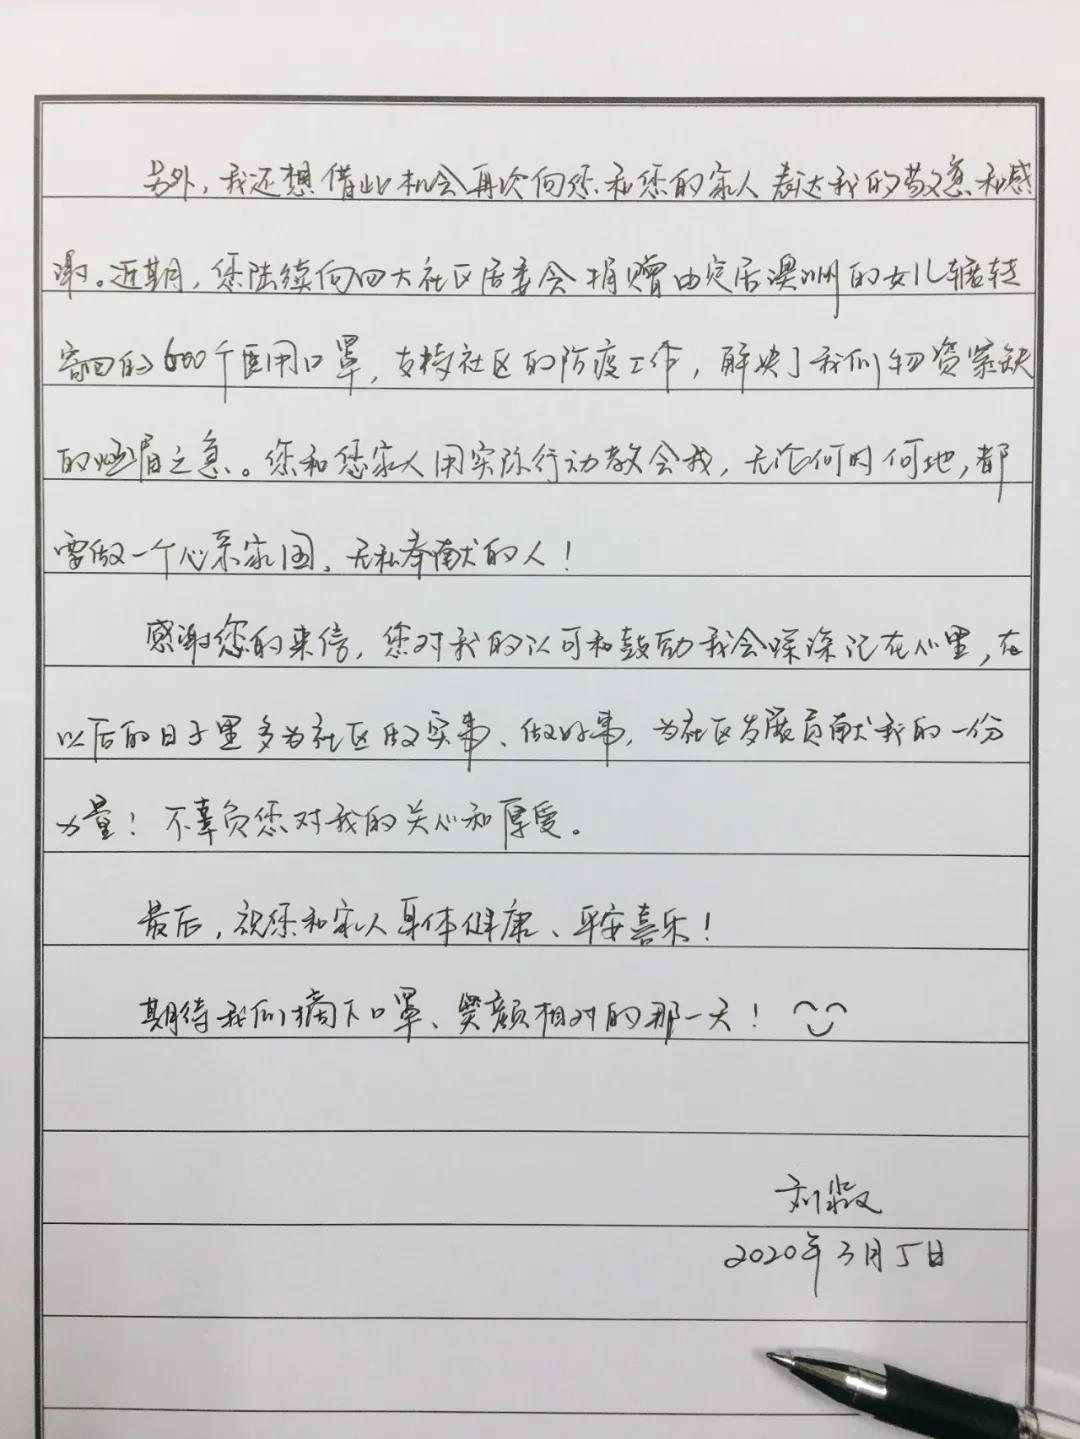 另外，我还想借此机会再次向您和您的家人表达我的敬意和感
谢。近期，您陆续向四大社区居委会捐赠由定居澳洲的女儿辗转
寄回的600个医用口罩，支持社区的防疫工作，解决了我们物资紧缺
的燃眉之急。您和您家人用实际行动教会我，无论何时何地，都
要做一个心系家国、无私奉献的人！
感谢您的来信，您对我的认可和鼓励我会深深记在心里，在
以后的日子里多为社区做实事、做好事，为社区发展贡献我的一份
力量！不辜负您对我的关心和厚爱。
最后，祝您和家人身体健康、平安喜乐！
期待我们摘下口罩、笑颜相对的那一天！
刘淑
2020年3月5日